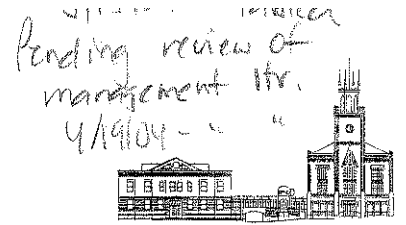 Pending review of
management ltr.
4/19/04 - " "